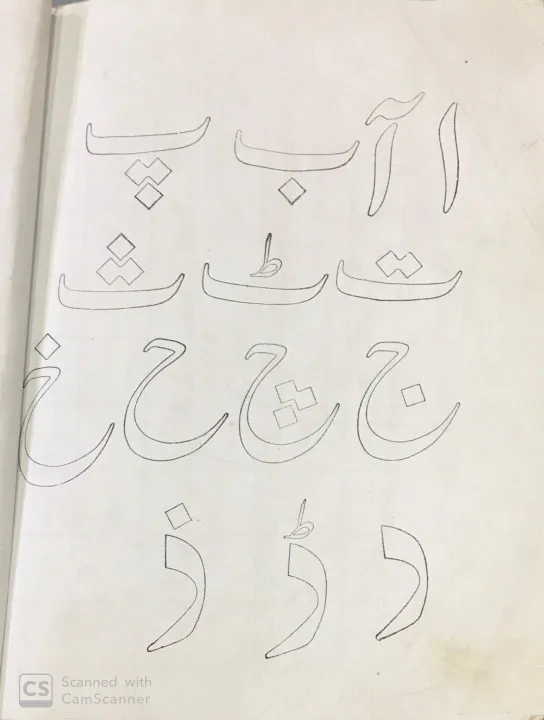 ا آ ب پ
ت ٹ ث
ج چ ح خ
د ڈ ذ
CS Scanned with
CamScanner